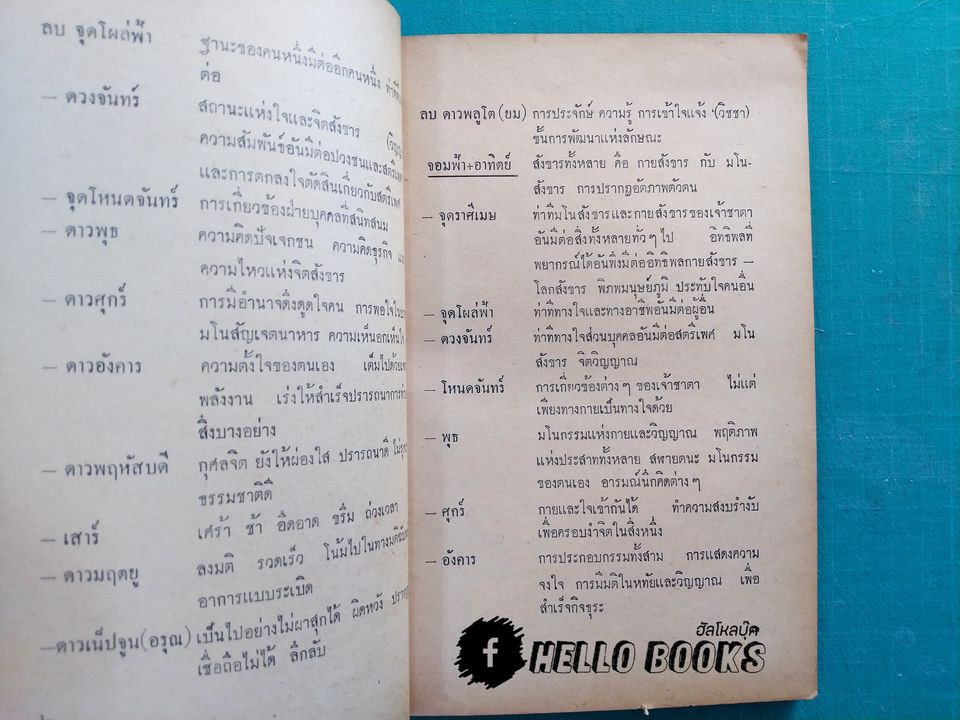 ลบ จุดโผล่ฟ้า ฐานะของคนหนึ่งมีต่ออีกคนหนึ่ง
ต่อ
– ดวงจันทร์ สถานะแห่งใจและจิตสังขาร
ความสัมพันธ์อันมีต่อปวงชนและสตรีเพศ
และการตกลงใจตัดสินเกี่ยวกับสตรีเพศ
– จุดโหนดจันทร์ การเกี่ยวข้องฝ่ายบุคคลที่สนิทสนม
– ดาวพุธ ความคิดปัจเจกชน ความคิดธุรกิจ
ความไหวแห่งจิตสังขาร
– ดาวศุกร์ การมีอำนาจดึงดูดใจคน การพอใจ
มโนสัญเจตนาหาร ความเห็นอกเห็นใจ
– ดาวอังคาร ความตั้งใจของตนเอง เต็มไปด้วย
พลังงาน เร่งให้สำเร็จปรารถนาการ
สิ่งบางอย่าง
– ดาวพฤหัสบดี กุศลจิต ยังให้ผ่องใส ปรารถนาดี
ธรรมชาติดี
– เสาร์ เศร้า ช้า อืดอาด ขรึม ถ่วงเวลา
– ดาวมฤตยู ลงมติ รวดเร็ว โน้มไปในทาง
อาการแบบระเบิด
–ดาวเน็ปจูน(อรุณ) เป็นไปอย่างไม่ผาสุกได้ ผิดหวัง
เชื่อถือไม่ได้ ลึกลับ
ลบ ดาวพลูโต (ยม) การประจักษ์ ความรู้ การเข้าใจแจ้ง (วิชชา)
ขั้นการพัฒนาแห่งลักษณะ
จอมฟ้า+อาทิตย์ สังขารทั้งหลาย คือ กายสังขาร กับ มโน-
สังขาร การปรากฏอัตภาพตัวตน
– จุดราศีเมษ ท่าทีมโนสังขารและกายสังขารของเจ้าชาตา
อันมีต่อสิ่งทั้งหลายทั่วๆ ไป อิทธิพลที่
พยากรณ์ได้อันพึงมีต่ออิทธิพลกายสังขาร –
โลกสังขาร พิภพมนุษย์ภูมิ ประทับใจคนอื่น
– จุดโผล่ฟ้า ท่าทีทางใจและทางอาชีพอันมีต่อผู้อื่น
– ดวงจันทร์ ท่าทีทางใจส่วนบุคคลอันมีต่อสตรีเพศ มโน
สังขาร จิตวิญญาณ
– โหนดจันทร์ การเกี่ยวข้องต่าง ๆ ของเจ้าชาตา ไม่แต่
เพียงทางกายเป็นทางใจด้วย
– พุธ มโนกรรมแห่งกายและวิญญาณ พฤติภาพ
แห่งประสาททั้งหลาย สฬายตนะ มโนกรรม
ของตนเอง อารมณ์นึกคิดต่าง ๆ
– ศุกร์ กายและใจเข้ากันได้ ทำความสงบรำงับ
เพื่อครอบงำจิตในสิ่งหนึ่ง
– อังคาร การประกอบกรรมทั้งสาม การแสดงความ
จงใจ การมีมติในหทัยและวิญญาณ เพื่อ
สำเร็จกิจธุระ
ฮัลโหลบุ๊ค
f HELLO BOOKS